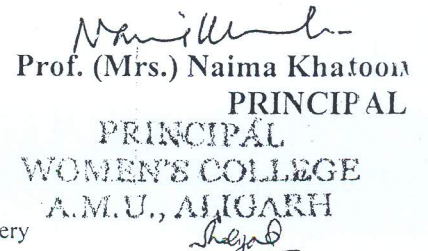 Prof. (Mrs.) Naima Khatoon
PRINCIPAL
PRINCIPAL
WOMEN'S COLLEGE
A.M.U., ALIGARH
ery